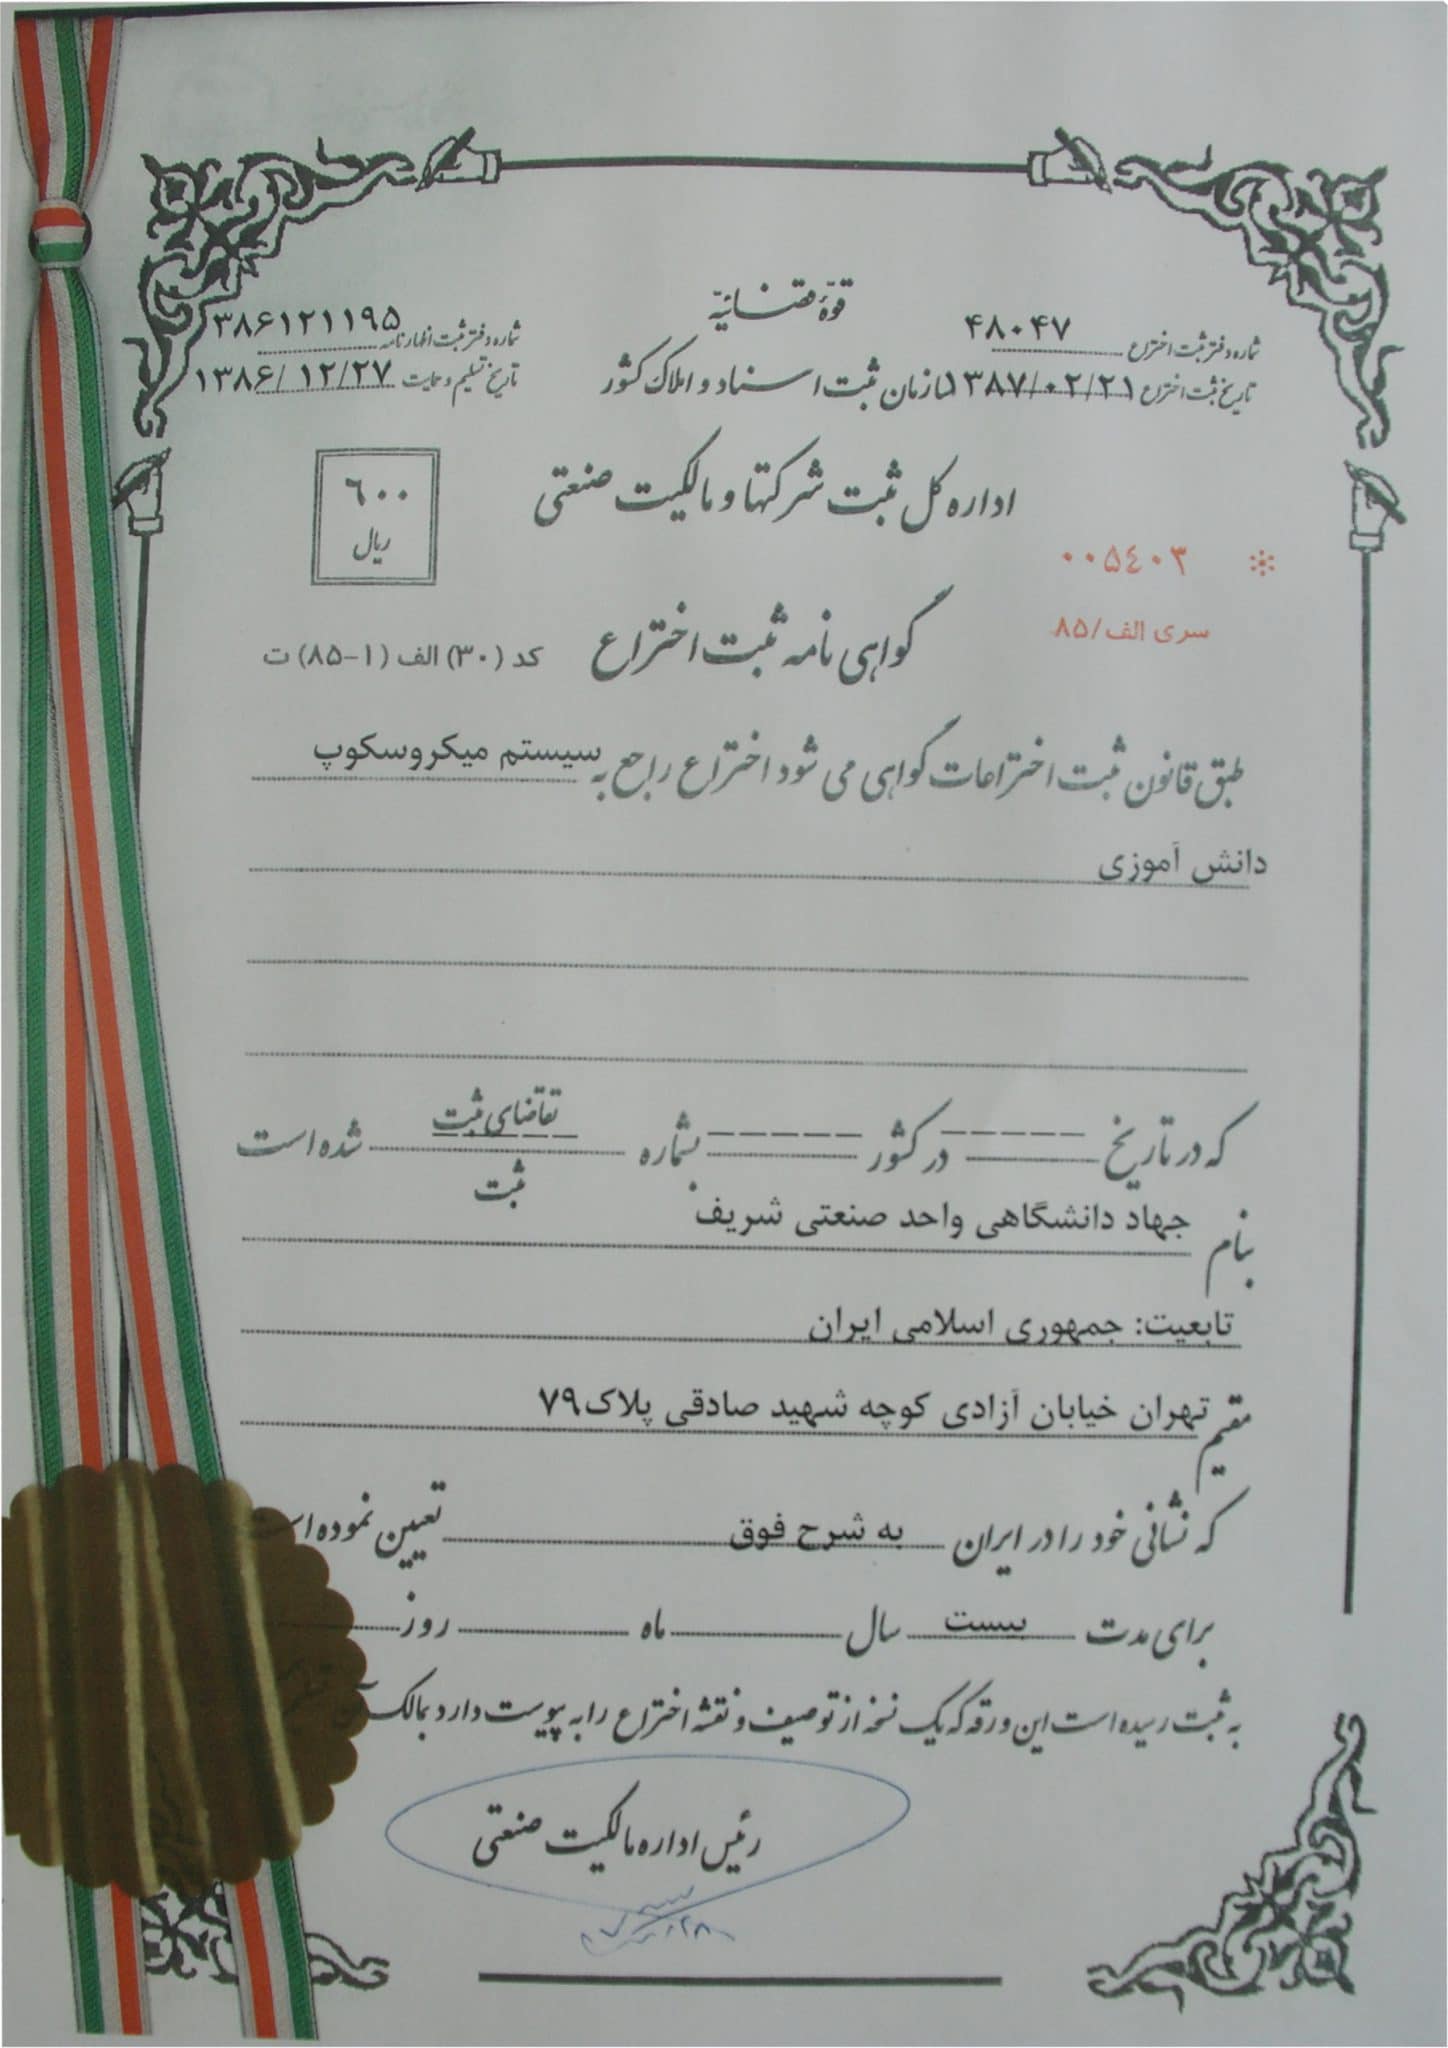 قوّهٔ قضائیّه
شماره دفتر ثبت اختراع ۴۸۰۴۷
شماره دفتر ثبت اظهارنامه ۳۸۶۱۲۱۱۹۵
تاریخ ثبت اختراع ۱۳۸۷/۰۲/۲۱
سازمان ثبت اسناد و املاک کشور
تاریخ تسلیم و حمایت ۱۳۸۶/۱۲/۲۷
اداره کل ثبت شرکتها و مالکیت صنعتی
۶۰۰
ریال
* ۰۰۵۴۰۳
سری الف/۸۵
گواهی نامه ثبت اختراع
کد (۳۰) الف (۱-۸۵) ت
طبق قانون ثبت اختراعات گواهی می شود اختراع راجع به سیستم میکروسکوپ
دانش آموزی
که در تاریخ ------ در کشور ------ بشماره ------ تقاضای ثبت
ثبت شده است
بنام جهاد دانشگاهی واحد صنعتی شریف
تابعیت: جمهوری اسلامی ایران
مقیم تهران خیابان آزادی کوچه شهید صادقی پلاک۷۹
که نشانی خود را در ایران به شرح فوق تعیین نموده است
برای مدت بیست سال ماه روز
به ثبت رسیده است این ورقه که یک نسخه از توصیف و نقشه اختراع را به پیوست دارد بمالک آن
رئیس اداره مالکیت صنعتی